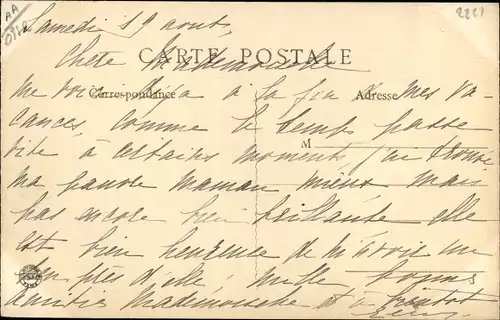 AA
2227
Samedi 19 aout,
Chere Mademoiselle
CARTE POSTALE
me voici déja a la fin de mes va-
Correspondance
Adresse
cances, comme le temps passe
M
vite à certains moments j'ai trouvé
ma pauvre maman mieux mais
pas encore bien brillante elle
est bien heureuse de m'avoir un
peu près d'elle, mille
d'amitié Mademoiselle et à bientot